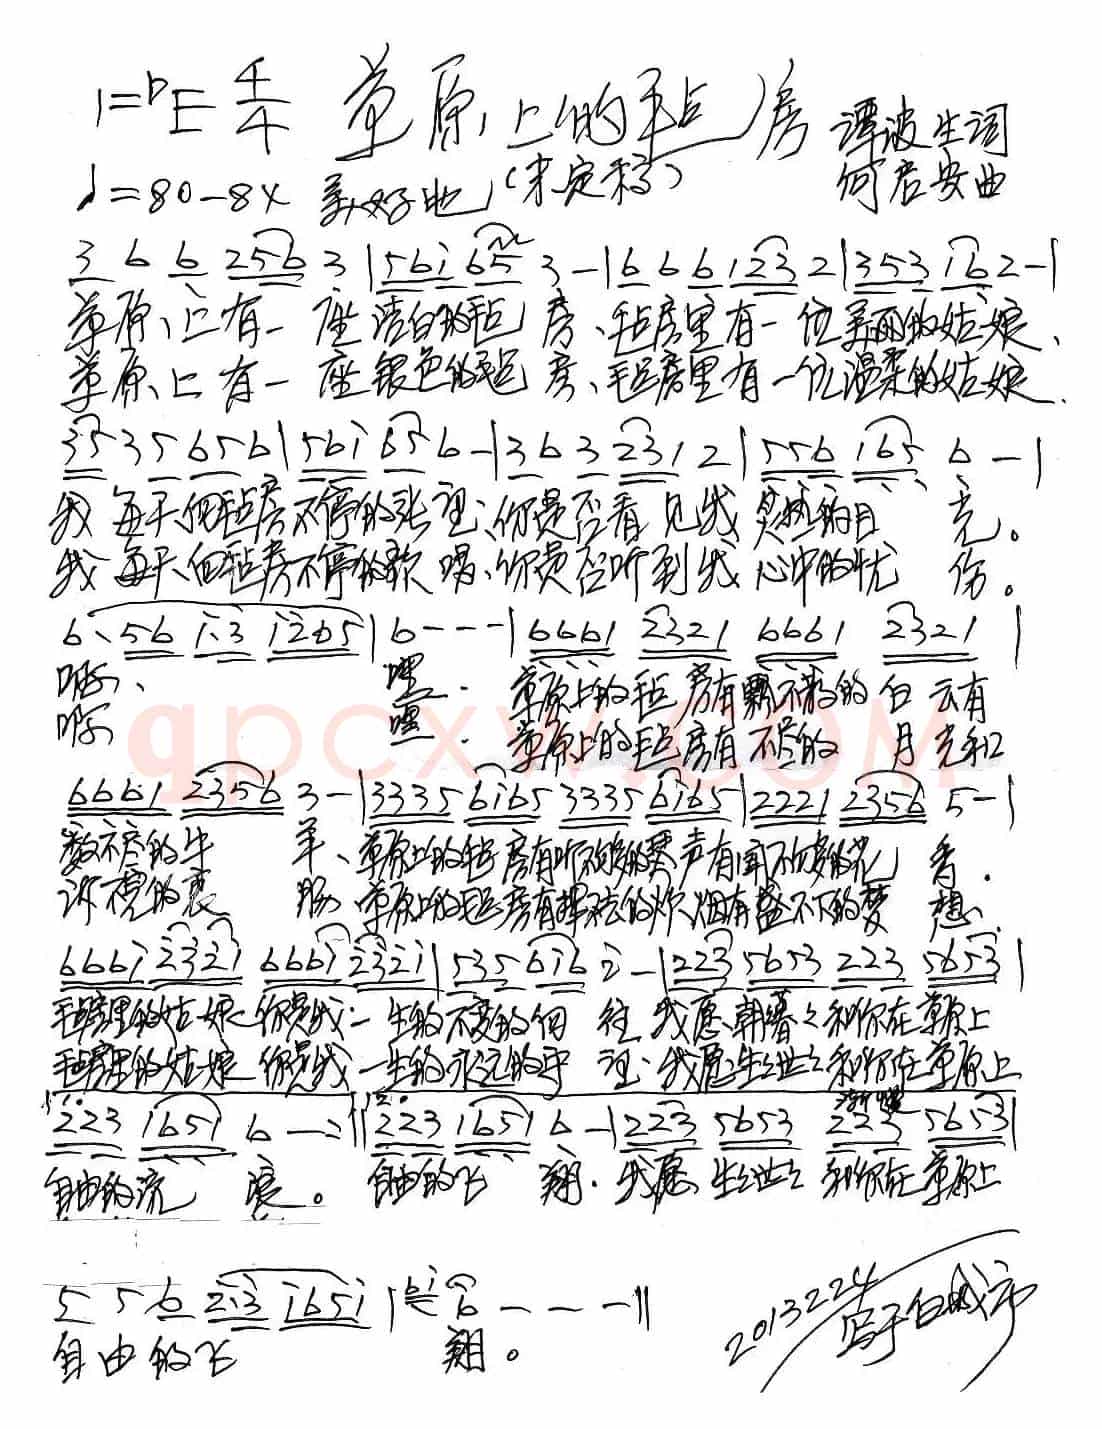 1=♭E 4/4 草原上的毡房 谭波生词
♩=80-84 美好地 (未定稿) 何启安曲
3 6 6 256 3 | 561 65 3 - | 6 6 6 123 2 | 353 162 - |
草原上有一座洁白的毡房、毡房里有一位美丽的姑娘、
草原上有一座银色的毡房、毡房里有一位温柔的姑娘.
35 35 656 | 561 65 6 - | 36 3 231 2 | 556 165 6 - |
我每天向毡房不停的张望、你是否看见我 的目光。
我每天向毡房不停的歌唱、你是否听到我心中的忧伤。
6· 56 1·3 1265 | 6 - - - | 6661 2321 6661 2321 |
啊、 嘿. 草原上的毡房有飘不散的白云有
啊 嘿. 草原上的毡房有不尽的月光和
6661 2356 3 - | 3335 6165 3335 6165 | 2221 2356 5 - |
数不尽的牛羊、草原上的毡房有听不够的琴声有闻不够的花香.
诉不完的衷肠.草原上的毡房有挥不去的炊烟有盛不下的梦想.
6661 2321 6661 2321 | 535 616 2 - | 223 5653 223 5653 |
毡房里的姑娘你是我一生的不变的向往 我愿朝暮暮和你在草原上
毡房里的姑娘你是我一生的永远的守望 我愿生生世世和你在草原上
1. 2. 渐慢
223 1651 6 - :|| 223 1651 6 - | 223 5653 223 5653 |
自由的流浪。 自由的飞翔. 我愿生生世世和你在草原上
5 5 6 2·3 1651 | 61 6 - - - ||
自由的飞翔。
2013224 写于白城市
qpcxw.COM